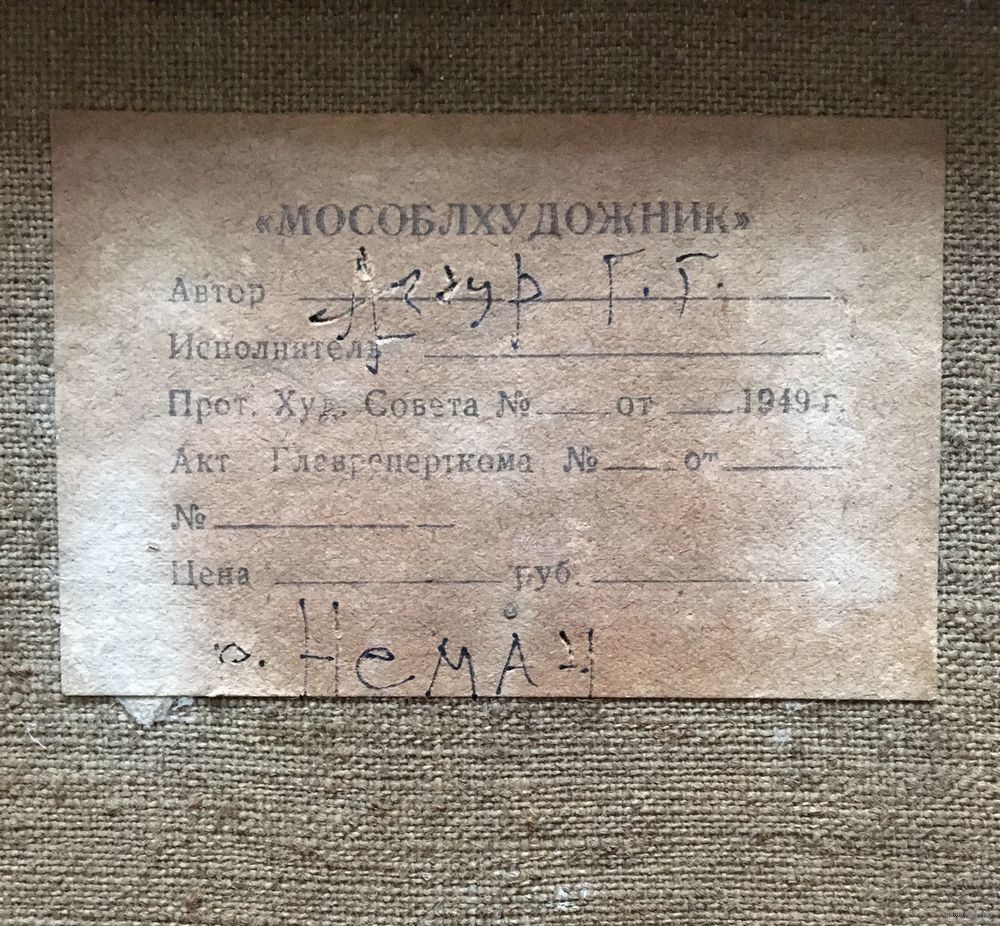 «МОСОБЛХУДОЖНИК»
Автор Азгур Г. Г.
Исполнитель
Прот. Худ. Совета № от 1949 г.
Акт Главреперткома № от
№
Цена руб.
р. Неман